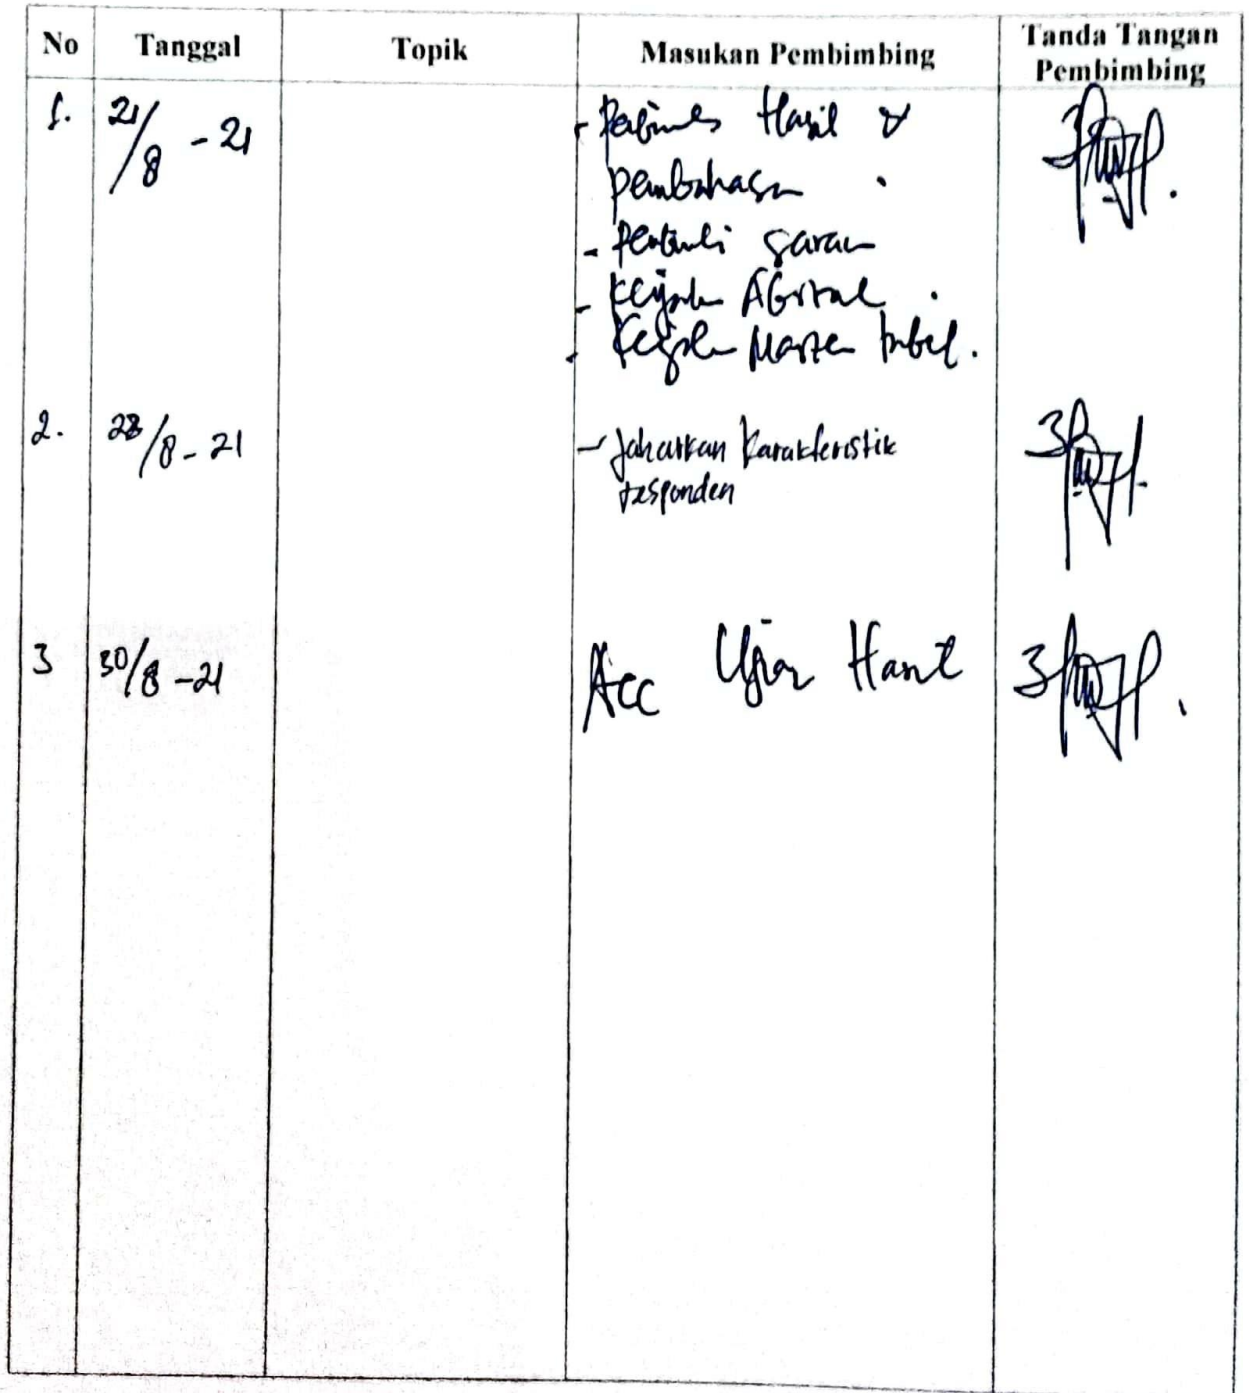 No Tanggal Topik Masukan Pembimbing Tanda Tangan Pembimbing
1. 21/8 - 21 - Hasil &
pembahasan .
- saran
- Abstrak .
- Master tabel.
2. 28/8 - 21 - Jabarkan Karakteristik
responden
3 30/8 - 21 Acc Ujian Hasil